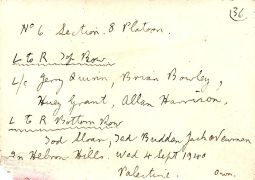 36
No 6 Section 8 Platoon.
L to R Top Row
L/c Jerry Quinn, Brian Bowley,
Huey Grant, Allan Harrison,
L to R Bottom Row
Tod Sloan, Ted Budden Jack Newman
In Hebron Hills. Wed 4 Sept 1940
Palestine. own.